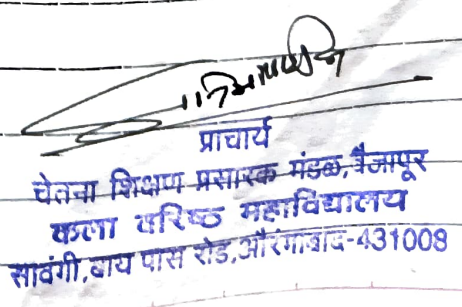 प्राचार्य
चेतना शिक्षण प्रसारक मंडळ,वैजापूर
कला वरिष्ठ महाविद्यालय
सावंगी,बाय पास रोड,औरंगाबाद-431008